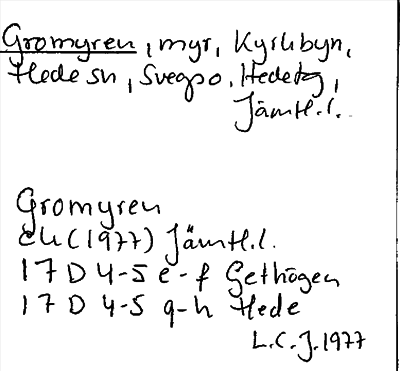 Gromyren, myr, Kyrkbyn,
Hede sn, Svegs po, Hede tg,
Jämtl.l.
Gromyren
ek (1977) Jämtl.l.
17 D 4-5 e-f Gethögen
17 D 4-5 g-h Hede
L.C.J. 1977